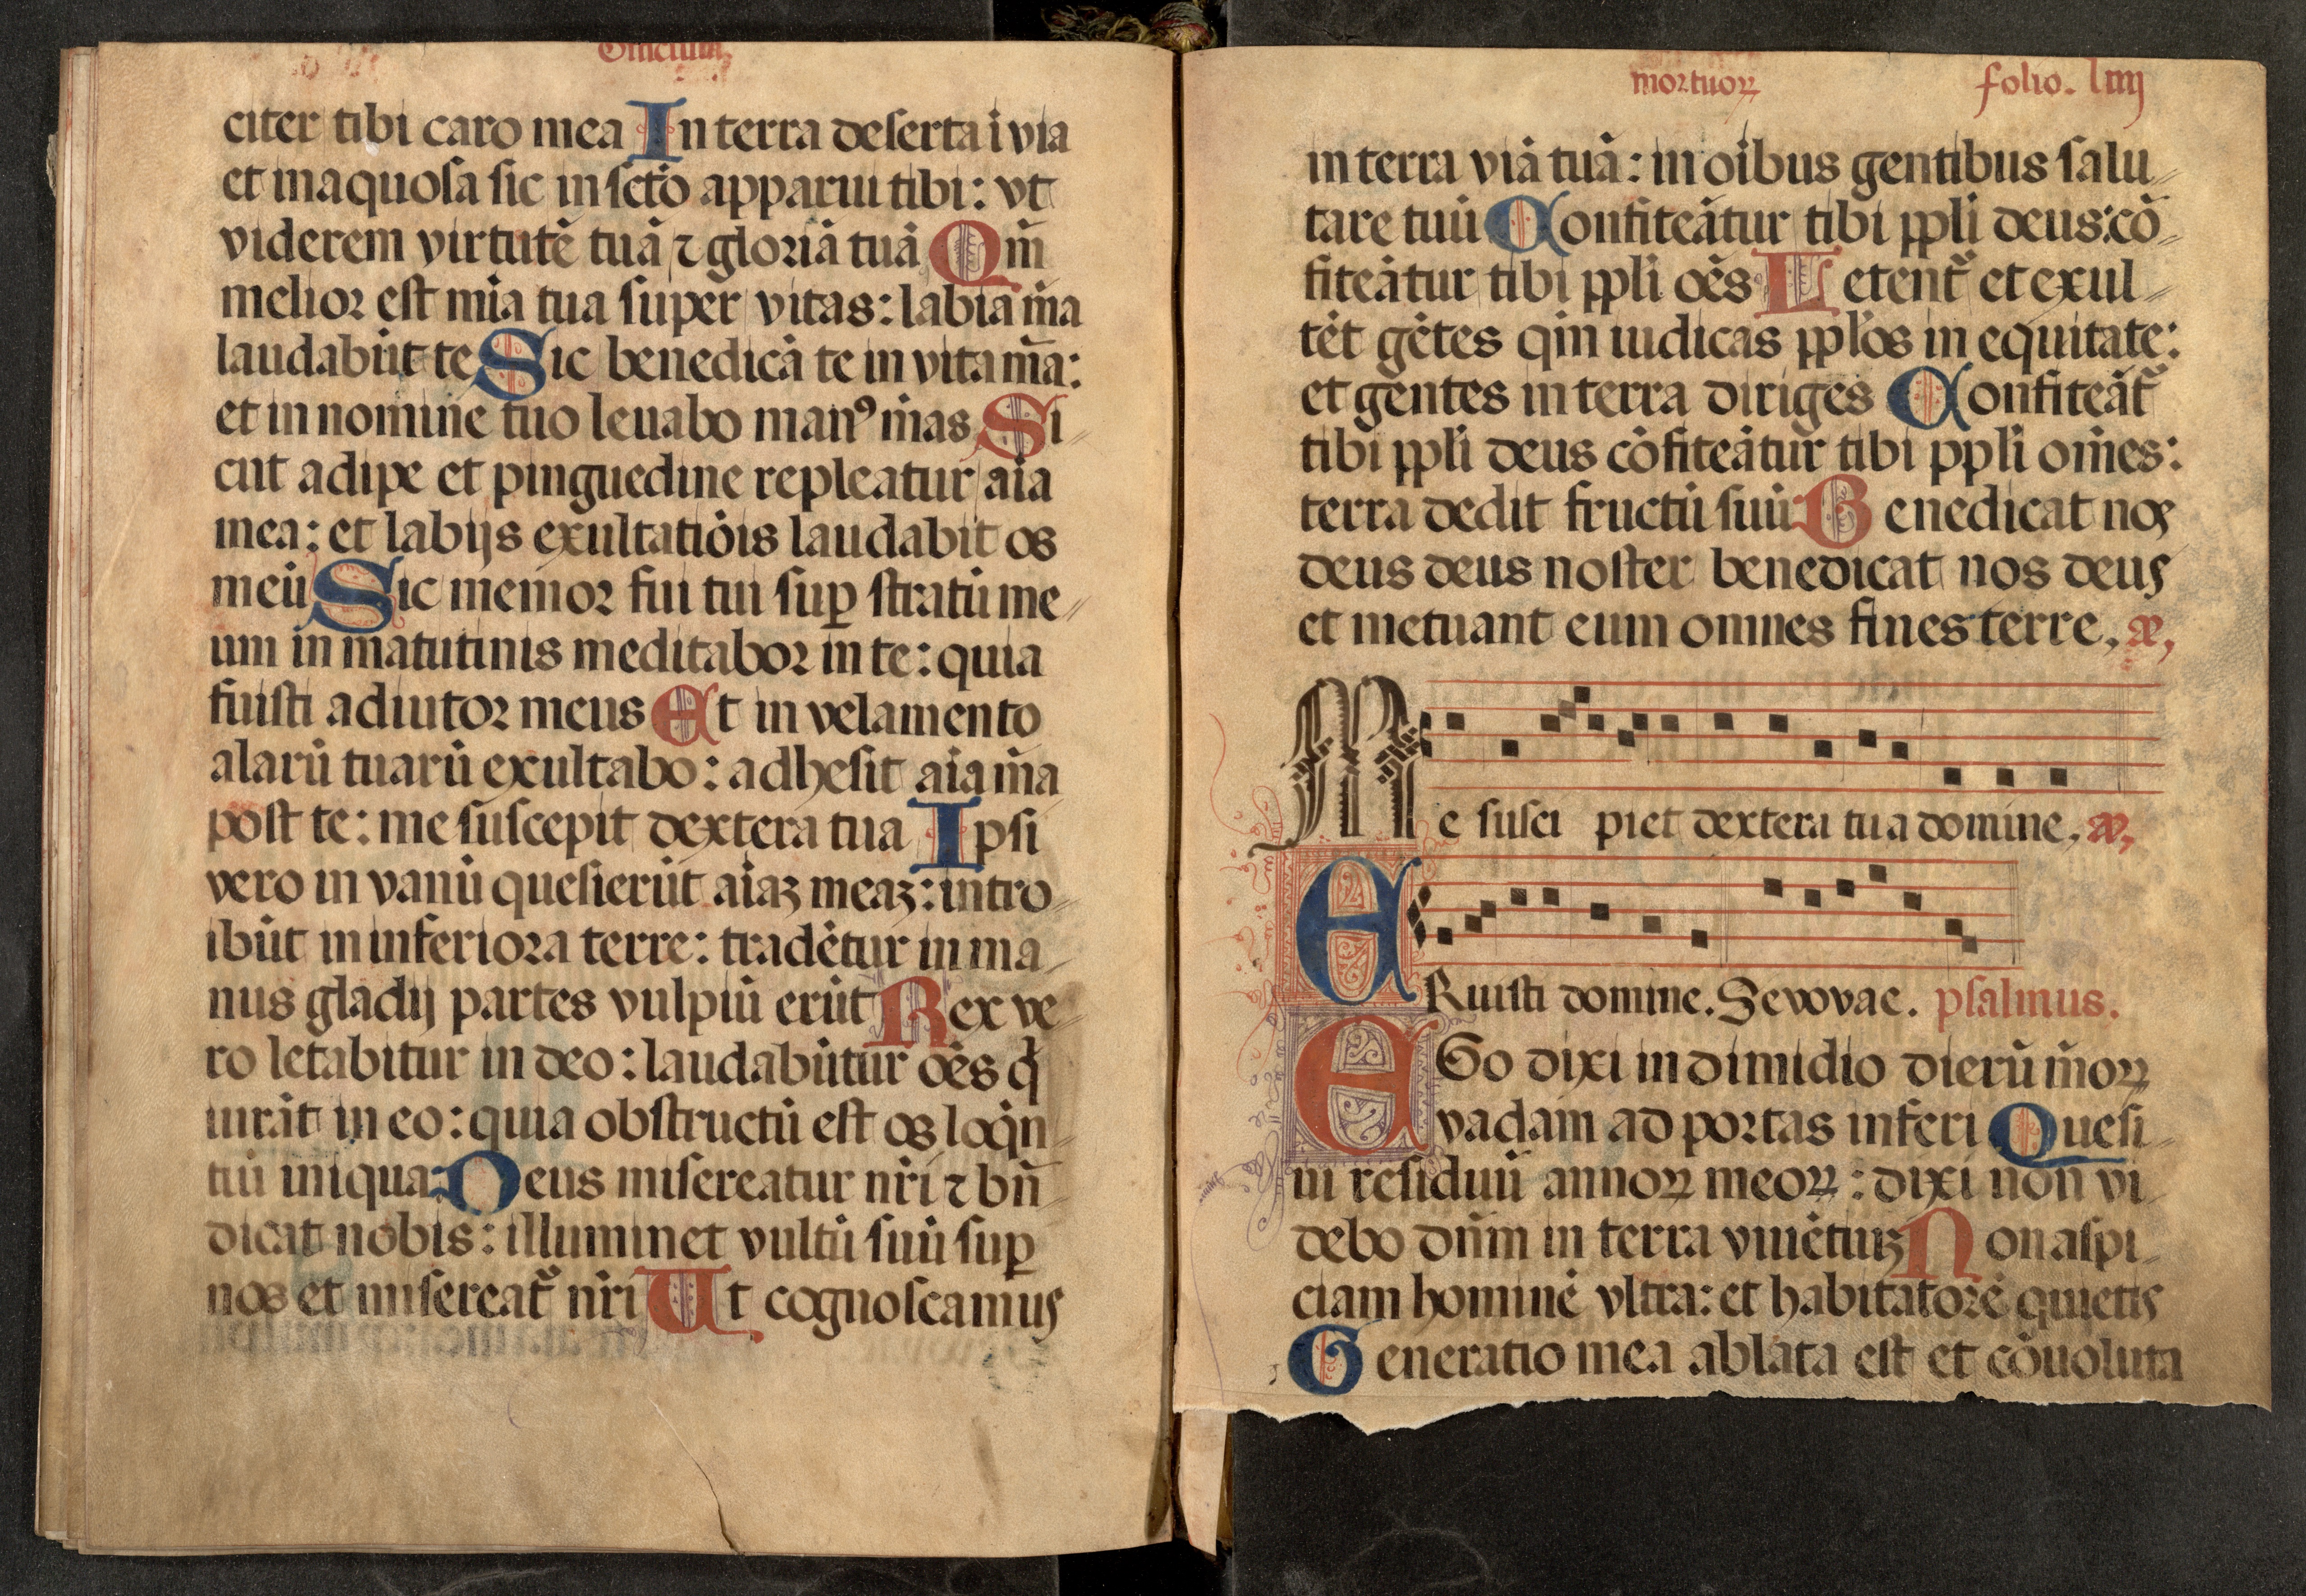 Officium
citer tibi caro mea In terra deserta i via
et inaquosa sic in scto apparui tibi: vt
viderem virtutē tuā ⁊ gloriā tuā Qm̄
melior est mīa tua super vitas: labia m̄a
laudabūt te Sic benedicā te in vita m̄a:
et in nomine tuo leuabo manꝰ m̄as Si
cut adipe et pinguedine repleatur aīa
mea: et labijs exultatiōis laudabit os
meū Sic memor fui tui suꝑ stratū me
um in matutinis meditabor in te: quia
fuisti adiutor meus Et in velamento
alarū tuarū exultabo: adhesit aīa m̄a
post te: me suscepit dextera tua Ipsi
vero in vanū quesierūt aīaꝫ meaꝫ: intro
ibūt in inferiora terre: tradētur in ma
nus gladij partes vulpiū erūt Rex ve
ro letabitur in deo: laudabūtur oēs q̇
iurāt in eo: quia obstructū est os loq̇n
tiū iniqua: Deus misereatur nr̄i ⁊ bn̄
dicat nobis: illuminet vultū suū suꝑ
nos et misereat᷑ nr̄i Ut cognoscamus
mortuoꝝ folio. liiij
in terra viā tuā: in oībus gentibus salu
tare tuū Confiteātur tibi ppli deus: cō
fiteātur tibi ppli oēs Letent᷑ et exul
tēt gētes qm̄ iudicas pplōs in equitate:
et gentes in terra diriges Confiteāt᷑
tibi ppli deus cōfiteātur tibi ppli om̄es:
terra dedit fructū suū Benedicat nos
deus deus noster benedicat nos deus
et metuant eum omnes fines terre, æ,
Me susci piet dextera tua domine, æ,
ERuisti domine. Sevovae. psalmus.
EGo dixi in dimidio dierū m̄oꝝ
vadam ad portas inferi Quesi
ui residuū annoꝝ meoꝝ: dixi non vi
debo dn̄m in terra viuētiuꝫ Non aspi
ciam hominē vltra: et habitatorē quietis
Generatio mea ablata est et cōuoluta